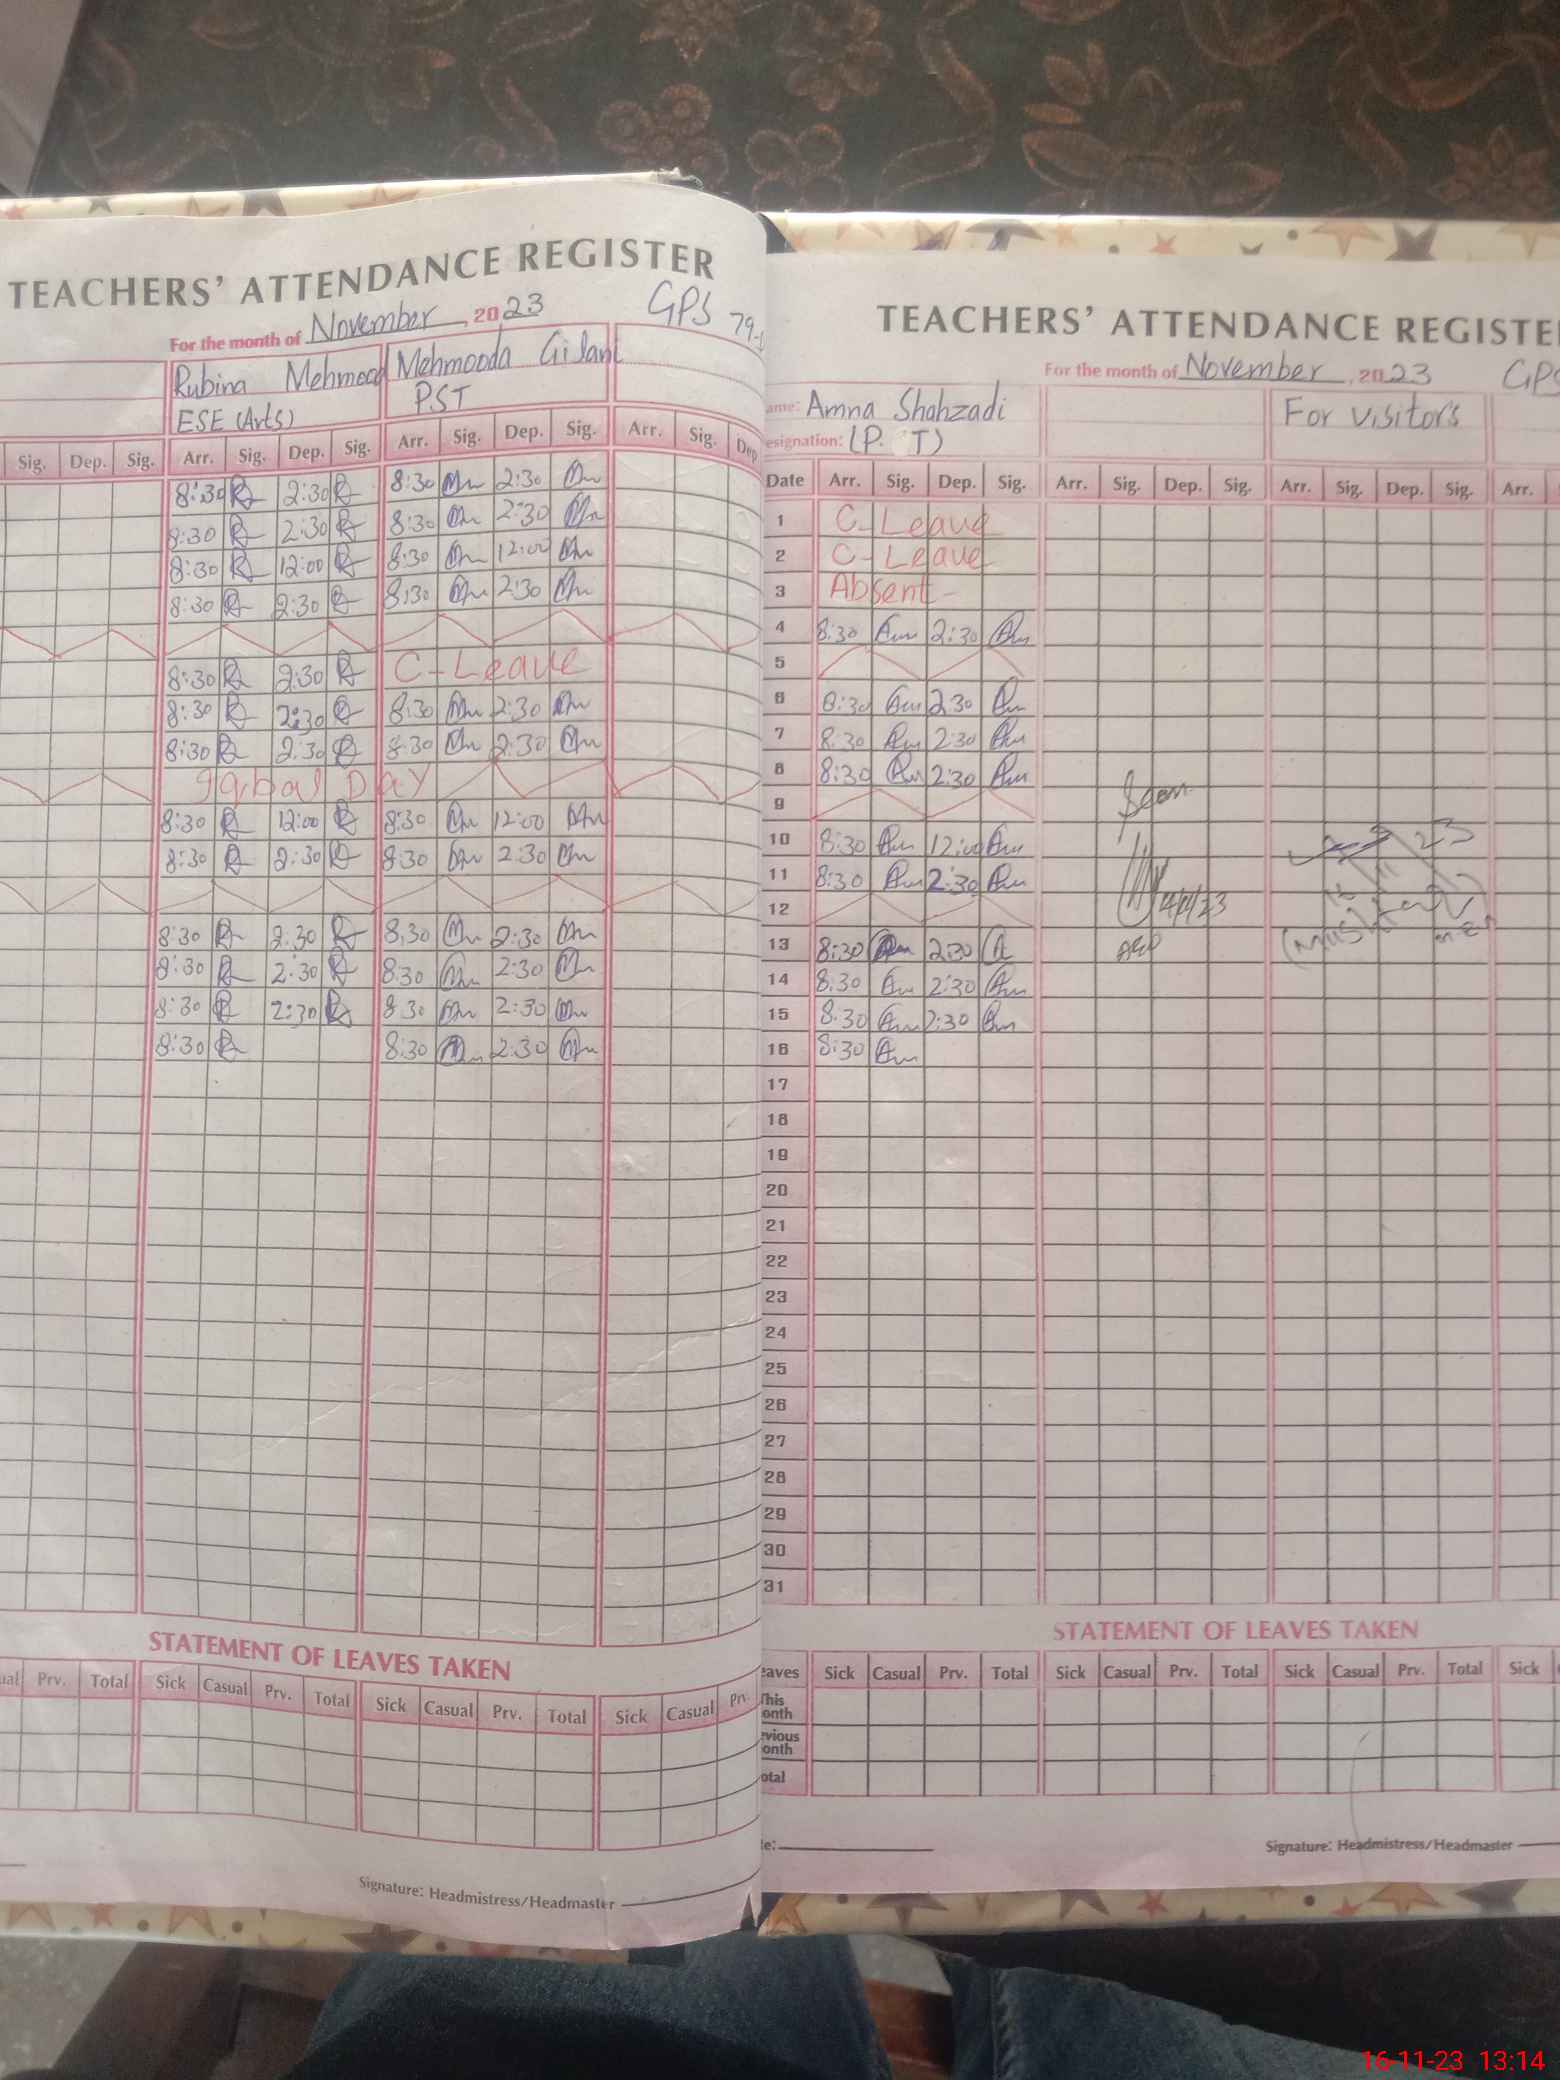 TEACHERS' ATTENDANCE REGISTER
For the month of November, 2023 GPS 79-
Rubina Mehmood Mehmooda Gilani
ESE (Arts) PST
Sig. Dep. Sig. Arr. Sig. Dep. Sig. Arr. Sig. Dep. Sig. Arr. Sig. Dep
8:30 2:30 8:30 2:30
8:30 2:30 8:30 2:30
8:30 12:00 8:30 12:00
8:30 2:30 8:30 2:30
8:30 2:30 C-Leave
8:30 2:30 8:30 2:30
8:30 2:30 8:30 2:30
Iqbal Day
8:30 12:00 8:30 12:00
8:30 2:30 8:30 2:30
8:30 2:30 8:30 2:30
8:30 2:30 8:30 2:30
8:30 2:30 8:30 2:30
8:30 8:30 2:30
STATEMENT OF LEAVES TAKEN
ual Prv. Total Sick Casual Prv. Total Sick Casual Prv. Total Sick Casual Prv.
Signature: Headmistress/Headmaster
TEACHERS' ATTENDANCE REGISTE
For the month of November, 2023 GPS
ame: Amna Shahzadi For visitors
esignation: (P. T)
Date Arr. Sig. Dep. Sig. Arr. Sig. Dep. Sig. Arr. Sig. Dep. Sig. Arr.
1 C-Leave
2 C-Leave
3 Absent
4 8:30 Am 2:30 Am
5
6 8:30 Am 2:30 Am
7 8:30 Am 2:30 Am
8 8:30 Am 2:30 Am
Seen
9
10 8:30 Am 12:00 Am
11 8:30 Am 2:30 Am
12
13 8:30 Am 2:30
14 8:30 Am 2:30 Am
15 8:30 Am 2:30 Am
16 8:30 Am
17
18
19
20
21
22
23
24
25
26
27
28
29
30
31
STATEMENT OF LEAVES TAKEN
eaves Sick Casual Prv. Total Sick Casual Prv. Total Sick Casual Prv. Total Sick
This
onth
evious
onth
otal
e:
Signature: Headmistress/Headmaster
16-11-23 13:14